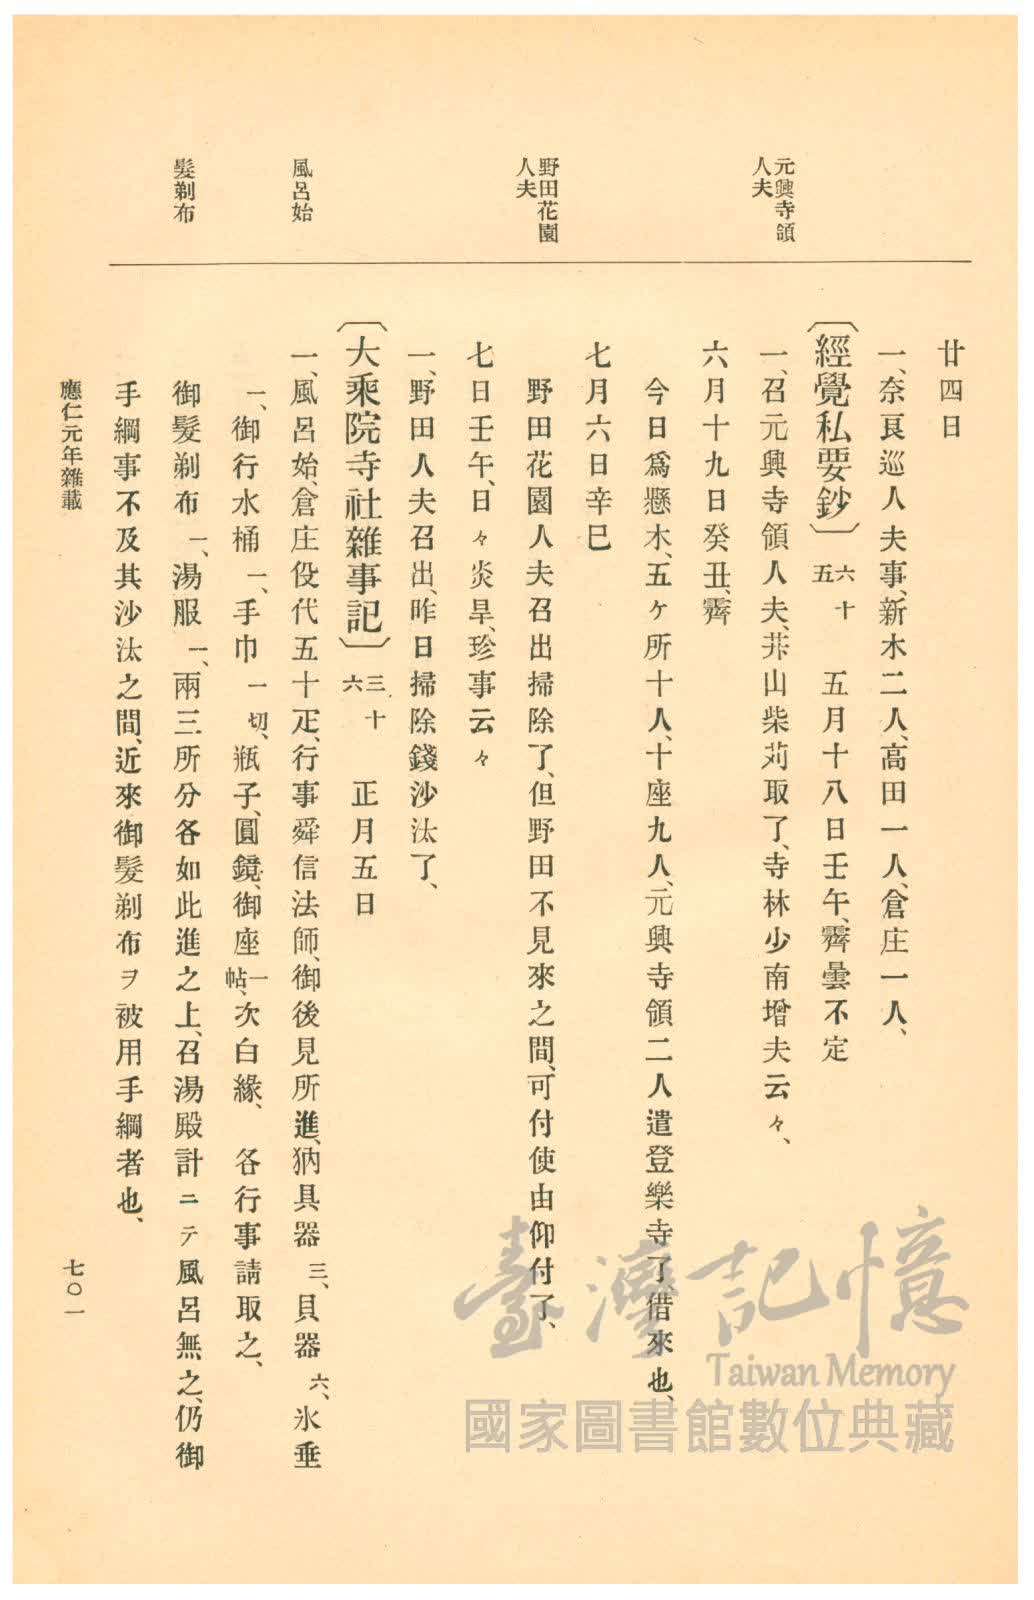 元興寺領
人夫
野田花園
人夫
風呂始
髮剃布
廿四日
一、奈良巡人夫事、新木二人、高田一人、倉庄一人、
〔經覺私要鈔〕 六十五 五月十八日壬午、霽曇不定
一、召元興寺領人夫、井山柴苅取了、寺林少南增夫云々、
六月十九日癸丑、霽
今日爲懸木、五ヶ所十人、十座九人、元興寺領二人遣登樂寺了借來也、
七月六日辛巳
野田花園人夫召出掃除了、但野田不見來之間、可付使由仰付了、
七日壬午、日々炎旱、珍事云々
一、野田人夫召出、昨日掃除錢沙汰了、
〔大乘院寺社雜事記〕 三十六 正月五日
一、風呂始、倉庄伇代五十疋、行事舜信法師、御後見所進、豿具器三、貝器六、氷垂
一、御行水桶 一、手巾一切、瓶子、圓鏡、御座一帖、次白緣、 各行事請取之、
御髮剃布 一、湯服 一、兩三所分各如此進之上、召湯殿計ニテ風呂無之、仍御
手綱事不及其沙汰之間、近來御髮剃布ヲ被用手綱者也、
應仁元年雜載
七〇一
臺灣記憶
Taiwan Memory
國家圖書館數位典藏